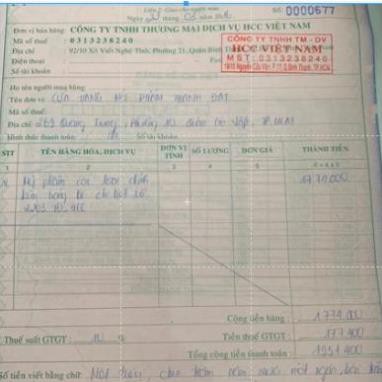 Liên 2: Giao cho người mua
Số: 0000677
Ngày tháng 03 năm
Đơn vị bán hàng: CÔNG TY TNHH THƯƠNG MẠI DỊCH VỤ HCC VIỆT NAM
Mã số thuế : 0313238240
Địa chỉ : 92/10 Xô Viết Nghệ Tĩnh, Phường 21, Quận Bình
Điện thoại
Số tài khoản
CÔNG TY TNHH TM - DV
HCC VIỆT NAM
MST: 0313238240
Họ tên người mua hàng
Tên đơn vị CỬA HÀNG MỸ PHẨM THÀNH ĐẠT
Mã số thuế
Địa chỉ Quang Trung, Phường 10, Quận Gò Vấp, TP.HCM
Hình thức thanh toán Số tài khoản
STT TÊN HÀNG HÓA, DỊCH VỤ ĐƠN VỊ TÍNH SỐ LƯỢNG ĐƠN GIÁ THÀNH TIỀN
1 2 3 4 5
Mỹ phẩm các loại 1.774.000
Cộng tiền hàng : 1.774.000
Thuế suất GTGT : 10 % Tiền thuế GTGT : 177.400
Tổng cộng tiền thanh toán : 1951.400
Số tiền viết bằng chữ: Một triệu, chín trăm năm mươi một ngàn, bốn trăm